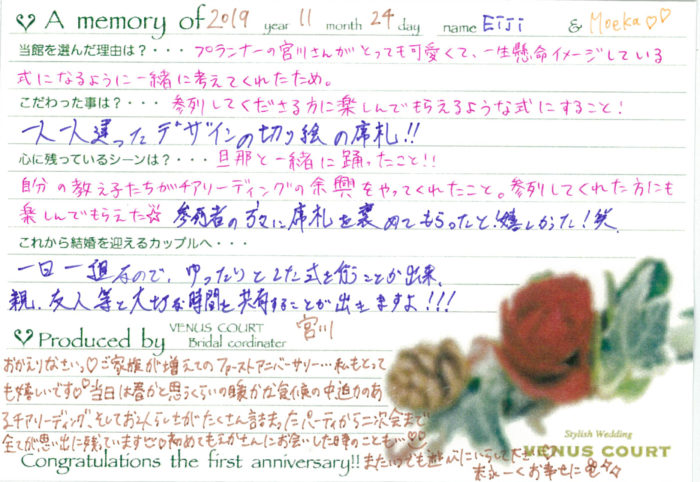 A memory of 2019 year 11 month 24 day name EIJI & Moeka♡♡
当館を選んだ理由は？・・・プランナーの宮川さんがとっても可愛くて、一生懸命イメージしている
式になるように一緒に考えてくれたため。
こだわった事は？・・・参列してくださる方に楽しんでもらえるような式にすること！
一人一人違ったデザインの切り絵の席札!!
心に残っているシーンは？・・・旦那と一緒に踊ったこと!!
自分の教え子たちがチアリーディングの余興をやってくれたこと。参列してくれた方にも
楽しんでもらえた☆ 参列者の方に席札を褒めてもらったこと！嬉しかった！笑
これから結婚を迎えるカップルへ・・・
一日一組なので、ゆったりとした式を行うことが出来、
親、友人等と大切な時間を共有することが出来ますよ!!!
Produced by VENUS COURT Bridal cordinater 宮川
おかえりなさいっ♡ご家族が増えてのファーストアニバーサリー…私もとって
も嬉しいです♡当日は春かと思うくらいの暖かな気候の中迫力のあ
るチアリーディング、そしてお2人らしさがたくさん詰まったパーティから二次会まで
全てが思い出に残っています♡初めてもえかさんにお会いした時のことも…♡
Stylish Wedding
VENUS COURT
Congratulations the first anniversary!! またいつでも遊びにいらして下さい
末永ーくお幸せに